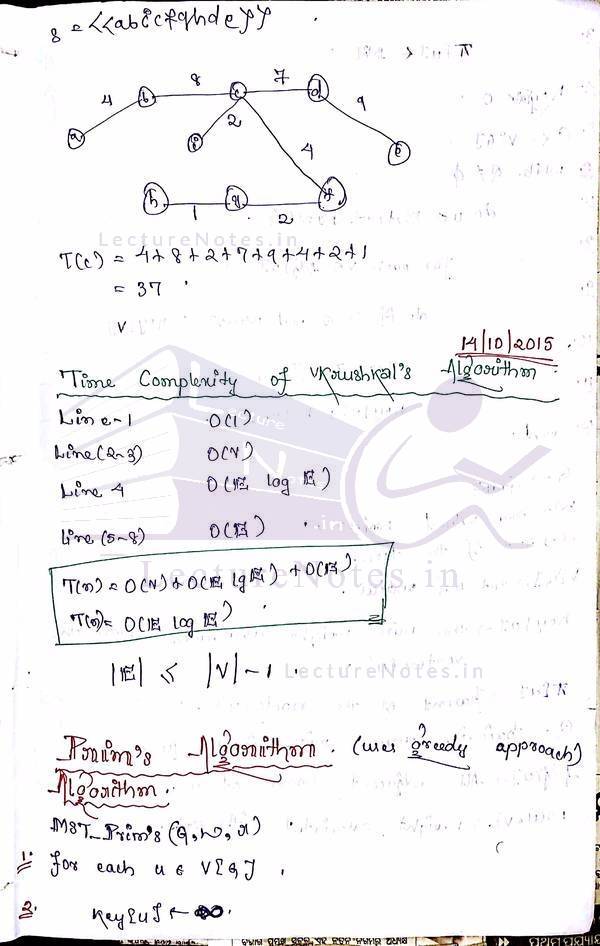 8 = {{a b i c f g h d e}}
π
4
8
7
9
2
4
1
2
a
b
c
d
e
i
h
g
f
LectureNotes.in
T(c) = 4+8+2+7+9+4+2+1
= 37
14/10/2015
Time Complexity of Krushkal's Algorithm
Line-1 O(1)
Line(2-3) O(V)
Line 4 O(E log E)
Line (5-8) O(E)
T(n) = O(V) + O(E lg E) + O(E)
T(n) = O(E log E)
LectureNotes.in
|E| ≤ |V| - 1
LectureNotes.in
Prim's Algorithm. (uses greedy approach)
Algorithm.
MST_Prim's (G, w, r)
1. for each u ∈ V[G]
2. Key[u] ← ∞.